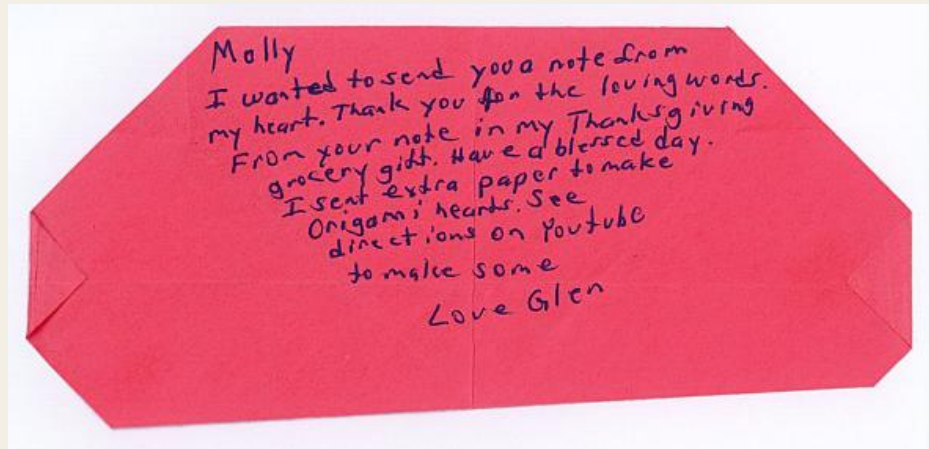 Molly
I wanted to send you a note from
my heart. Thank you for the loving words.
From your note in my Thanksgiving
grocery gift. Have a blessed day.
I sent extra paper to make
Origami hearts. See
directions on Youtube
to make some
Love Glen